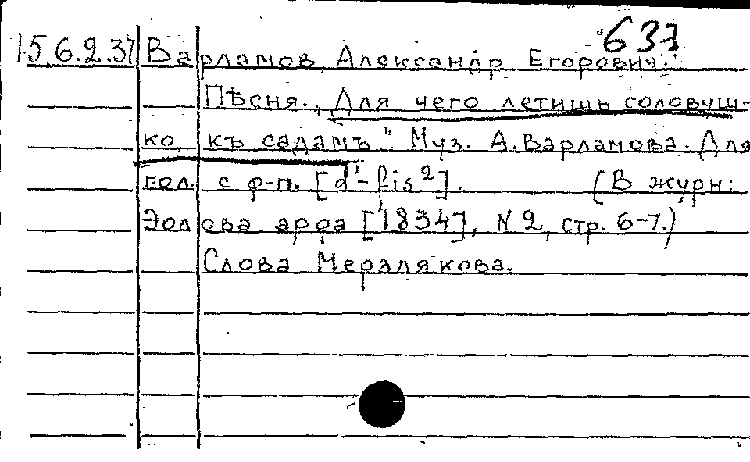 637
15.6.2.37 Варламов, Александр Егорович.
Пѣсня. „Для чего летишь соловуш-
ко, къ садамъ" Муз. А. Варламова. Для
гол. с ф-п. [d¹-fis²]. (В журн:
Эолова арфа [1834], N 2, стр. 6-7.)
Слова Мерзлякова.